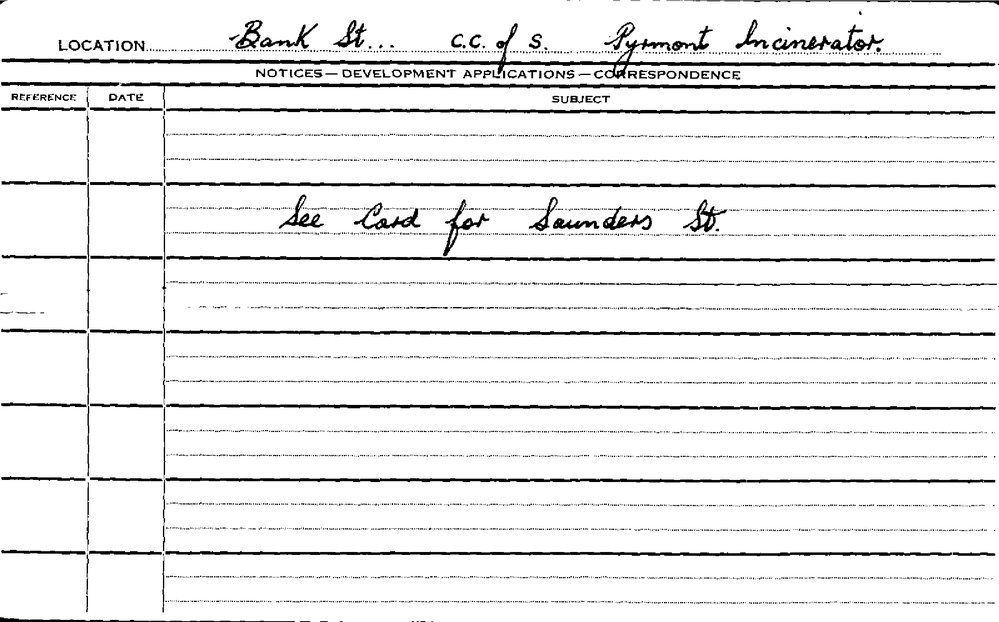 LOCATION Bank St... C.C. of S. Pyrmont Incinerator.
NOTICES — DEVELOPMENT APPLICATIONS — CORRESPONDENCE
REFERENCE DATE SUBJECT
See Card for Saunders St.